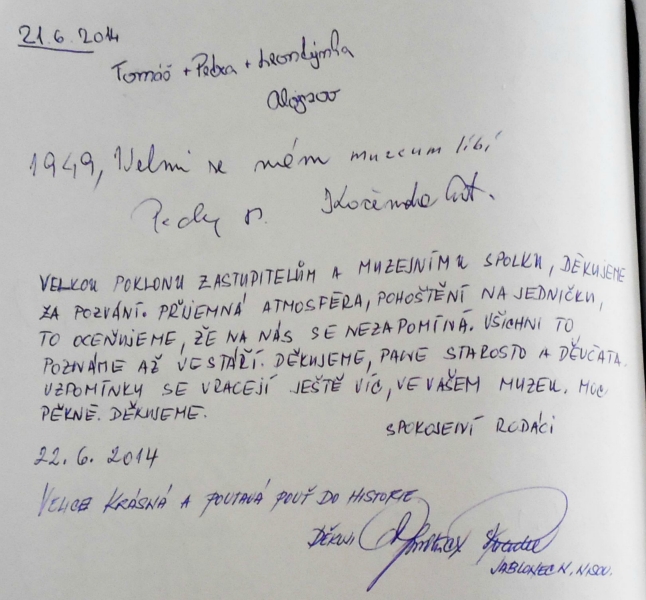 21.6.2014
Tomáš + Petra + Leontýnka
Alojzov
1949, Velmi se mém muzeum líbí
VELKOU POKLONU ZASTUPITELŮM A MUZEJNÍMU SPOLKU, DĚKUJEME
ZA POZVÁNÍ. PŘÍJEMNÁ ATMOSFÉRA, POHOŠTĚNÍ NA JEDNIČKU,
TO OCEŇUJEME, ŽE NA NÁS SE NEZAPOMÍNÁ. VŠICHNI TO
POZNÁME AŽ VE STÁŘÍ. DĚKUJEME, PANE STAROSTO A DĚVČATA.
VZPOMÍNKY SE VRACEJÍ JEŠTĚ VÍC, VE VAŠEM MUZEU. MOC
PĚKNÉ. DĚKUJEME.
SPOKOJENÍ RODÁCI
22.6.2014
VELICE KRÁSNÁ A POUTAVÁ POUŤ DO HISTORIE
DĚKUJI
JABLONEC N. NISOU.